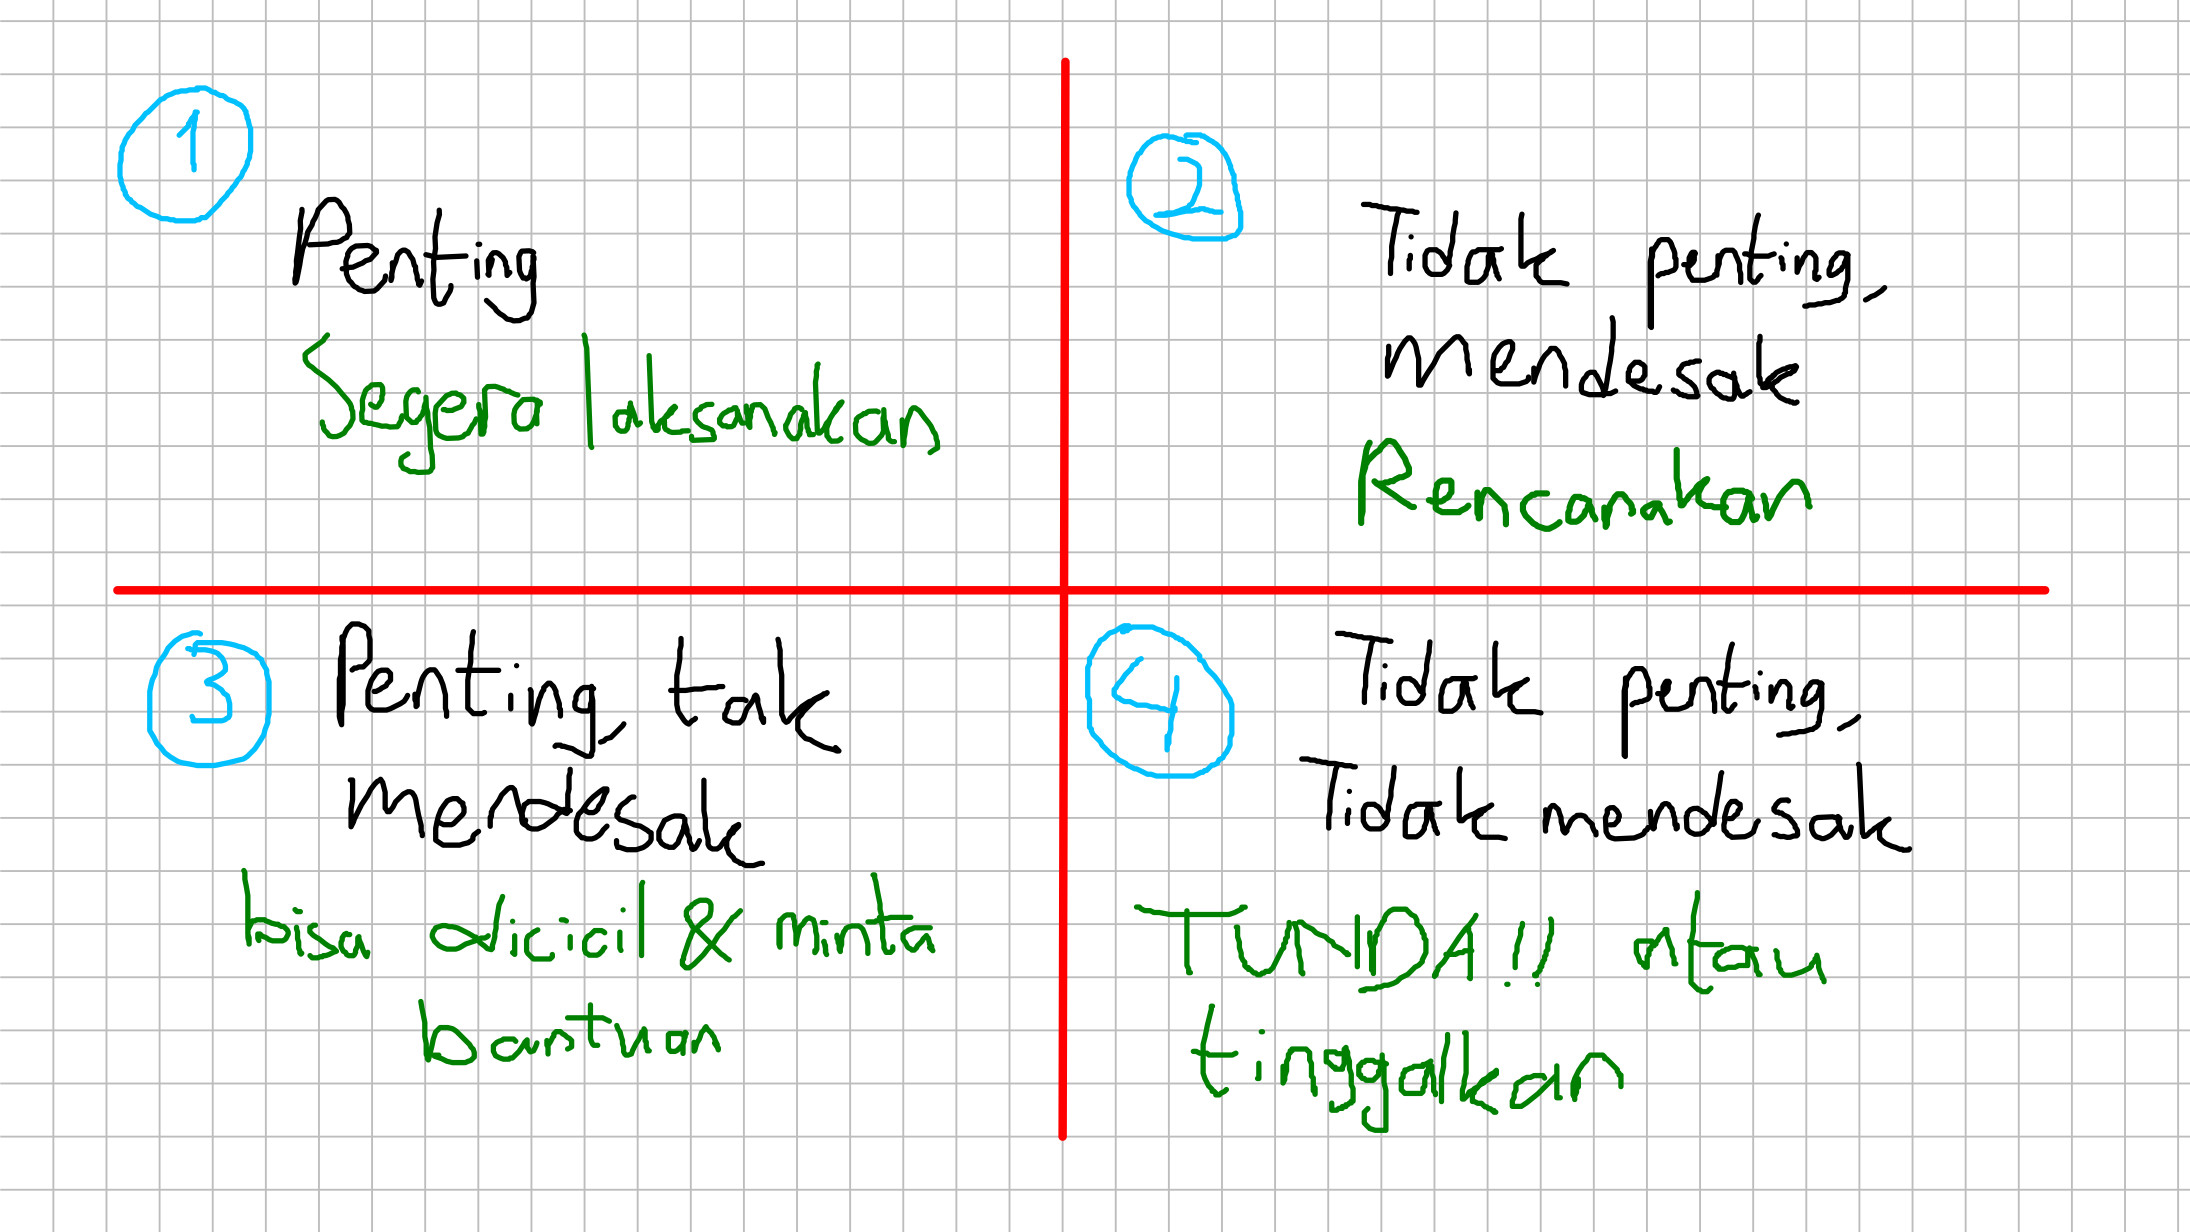 1
Penting
Segera laksanakan
2
Tidak penting,
mendesak
Rencanakan
3
Penting, tak
mendesak
bisa dicicil & minta
bantuan
4
Tidak penting,
Tidak mendesak
TUNDA!! atau
tinggalkan